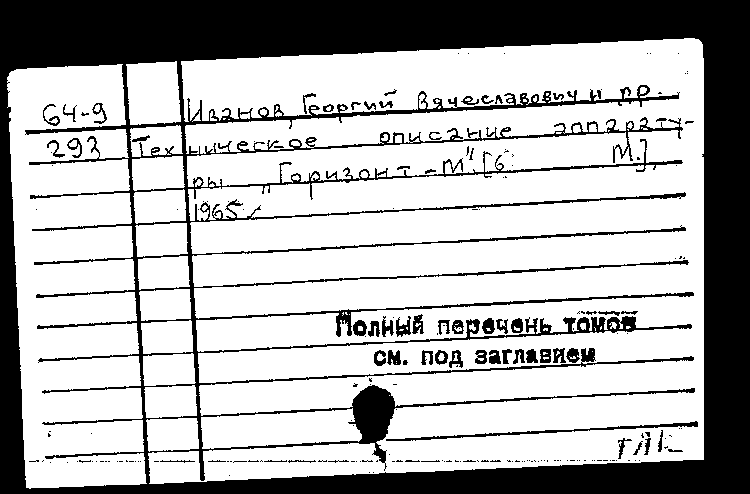 64-9 Иванов, Георгий Вячеславович и др.
293 Техническое описание аппарату-
ры „Горизонт-М". [б М.],
1965.
Полный перечень томов
см. под заглавием